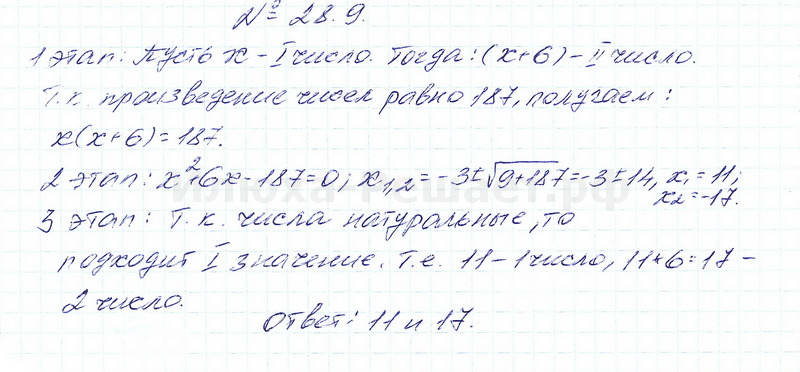 № 28.9.
1 этап: Пусть x - I число. Тогда: (x+6) - II число.
Т.к. произведение чисел равно 187, получаем:
x(x+6)=187.
2 этап: x²+6x-187=0; x₁,₂=-3±√9+187=-3±14, x₁=11;
x₂=-17.
3 этап: Т.к. числа натуральные, то
подходит I значение. Т.е. 11 - 1 число, 11+6=17 -
2 число.
Ответ: 11 и 17.